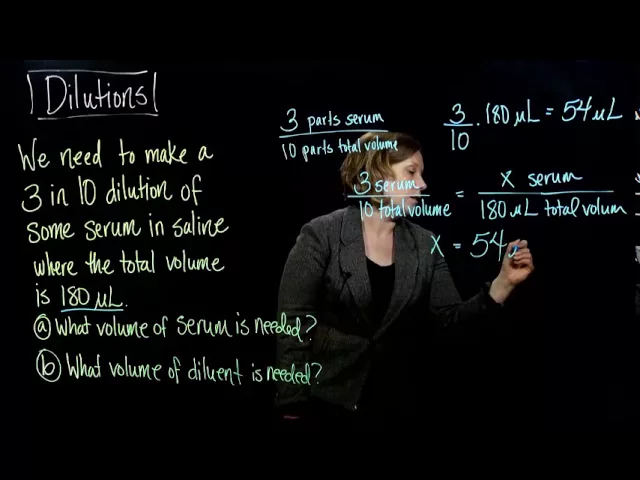 Dilutions
We need to make a
3 in 10 dilution of
some serum in saline
where the total volume
is 180 µL.
ⓐ What volume of serum is needed?
ⓑ What volume of diluent is needed?
3 parts serum
10 parts total volume
3/10 · 180 µL = 54 µL
3 serum = x serum
10 total volume 180 µL total volum
x = 54 µ